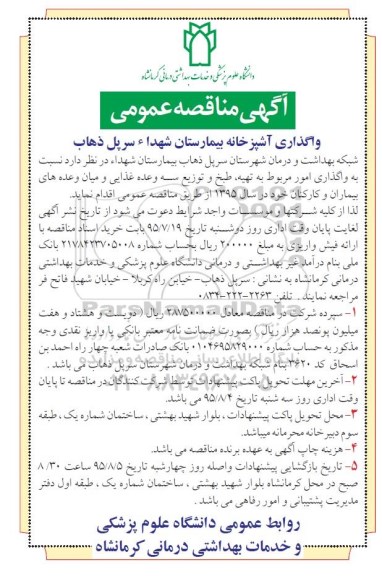 دانشگاه علوم پزشکی و خدمات بهداشتی درمانی کرمانشاه
آگهی مناقصه عمومی
واگذاری آشپزخانه بیمارستان شهداء سرپل ذهاب
شبکه بهداشت و درمان شهرستان سرپل ذهاب بیمارستان شهداء در نظر دارد نسبت
به واگذاری امور مربوط به تهیه، طبخ و توزیع سه وعده غذایی و میان وعده های
بیماران و کارکنان خود در سال ۱۳۹۵ از طریق مناقصه عمومی اقدام نماید.
لذا از کلیه شرکتها و موسسات واجد شرایط دعوت می شود از تاریخ نشر آگهی
لغایت پایان وقت اداری روز دوشنبه تاریخ ۹۵/۷/۱۹ بابت خرید اسناد مناقصه با
ارائه فیش واریزی به مبلغ ۲۰۰۰۰۰ ریال بحساب شماره ۲۱۷۸۴۲۳۷۰۵۰۰۸ بانک
ملی بنام درآمد غیر بهداشتی و درمانی دانشگاه علوم پزشکی و خدمات بهداشتی
درمانی کرمانشاه به نشانی : سرپل ذهاب- خیابان راه کربلا - خیابان شهید فاتح فر
مراجعه نمایند . تلفن ۲۲۶۳-۲۲۲-۰۸۳۴
۱- سپرده شرکت در مناقصه معادل ۲۸۷۵۰۰۰۰۰ ریال ( دویست و هشتاد و هفت
میلیون پونصد هزار ریال ) بصورت ضمانت نامه معتبر بانکی یا واریز نقدی وجه
مذکور به حساب شماره ۰۱۰۴۶۹۵۸۲۹۰۰۰ بانک صادرات شعبه چهار راه احمد بن
اسحاق کد ۳۶۲۰ بنام شبکه بهداشت و درمان شهرستان سرپل ذهاب می باشد .
۲- آخرین مهلت تحویل پاکت پیشنهادات توسط شرکت کنندگان در مناقصه تا پایان
وقت اداری روز سه شنبه تاریخ ۹۵/۸/۴ می باشد.
۳- محل تحویل پاکت پیشنهادات ، بلوار شهید بهشتی ، ساختمان شماره یک ، طبقه
سوم دبیرخانه محرمانه میباشد.
۴- هزینه چاپ آگهی به عهده برنده مناقصه می باشد.
۵- تاریخ بازگشایی پیشنهادات واصله روز چهارشنبه تاریخ ۹۵/۸/۵ ساعت ۸/۳۰
صبح در محل کرمانشاه بلوار شهید بهشتی ، ساختمان شماره یک ، طبقه اول دفتر
مدیریت پشتیبانی و امور رفاهی می باشد .
روابط عمومی دانشگاه علوم پزشکی
و خدمات بهداشتی درمانی کرمانشاه